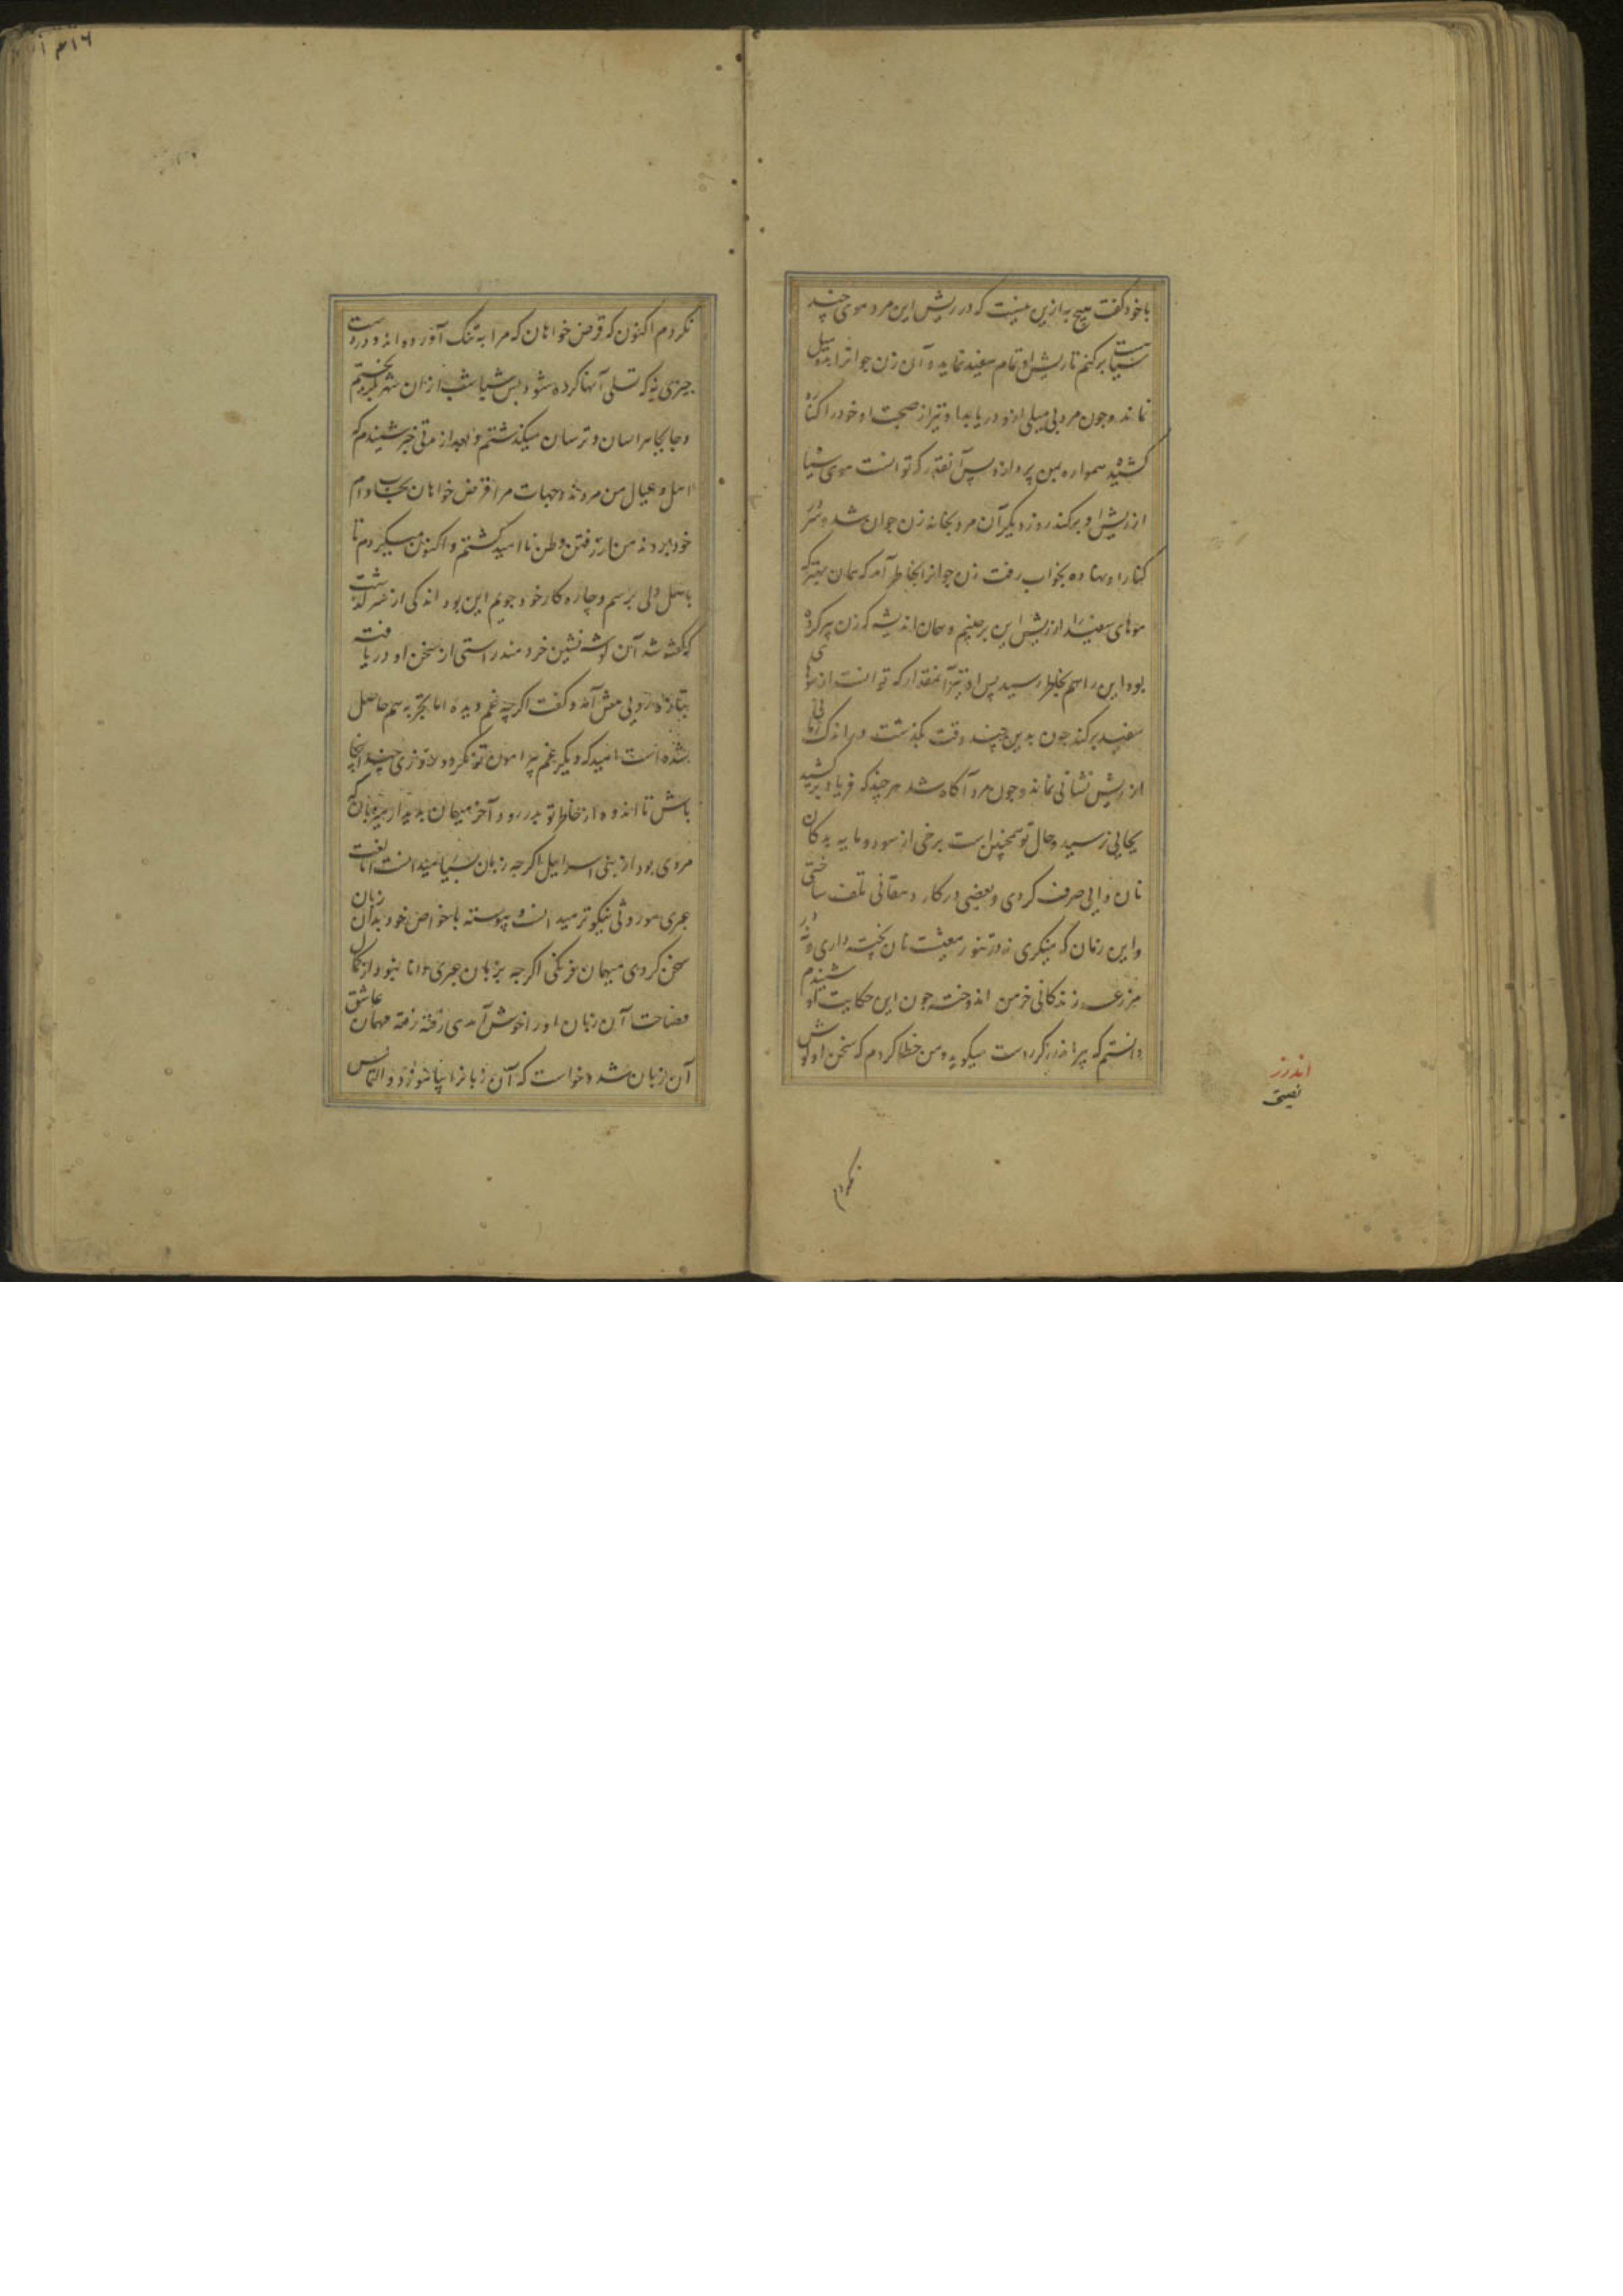 باخود گفت هیچ به ازین نیست که در ریش این مرد موی چند
سیاست برکنم تا ریش او تمام سفید نماید و آن زن جوانرا بدو میل
نماند و چون مرد بی میلی او دریابد او نیز از صحبت او خود را کناره
کشیده همواره بمن پردازد پس آنقدر که توانست موی سیاه
از ریش او برکند روز دیگر آن مرد بخانه زن جوان شد و سر
کنار او نهاده بخواب رفت زن جوانرا بخاطر آمد که همان بهتر که
موهای سفید را از ریش این برچینم و همان اندیشه که زن پیر کرده
بود این را هم بخاطر رسید پس او نیز آنمقدار که توانست از موهای
سفید برکند چون بدین چند وقت بگذشت در اندک زمانی
از ریش نشانی نماند و چون مرد آگاه شد هر چند که فریاد برکشید
بجایی نرسید و حال تو همچنین است برخی از سود و مایه بدکان
نان وایی صرف کردی و بعضی در کار دهقانی تلف ساختی
و این زمان که مینگری نه در تنور معیشت نان پخته داری و نه در
مزرعه زندگانی خرمن اندوخته چون این حکایت شنیدم
دانستم که پیر اندرزگر راست میگوید و من خطا کردم که سخن او گوش
اندرز
نصیحت
نکردم
۳۱۶
نکردم اکنون که قرض خواهان که مرا به تنگ آورده اند و در دست
چیزی نه که تسلی آنها کرده شود پس شباشب ازان شهر بگریختم
و جابجا هراسان و ترسان میگذشتم و بعد از مدتی خبر شنیدم که
اهل و عیال من مردند و جهات مرا قرض خواهان بحساب دام
خود بردند من از رفتن وطن نا امید گشتم و اکنون میگردم تا
باهل دلی برسم و چاره کار خود جویم این بود اندکی از سرگذشت
که گفته شد آن گوشه نشین خردمند راستی از سخن او دریافته
بتازه رویی پیش آمد و گفت اگرچه غم دیده اما تجربه هم حاصل
شده است امید که دیگر غم پیرامون تو نگردد روزی چند اینجا
باش تا اندوه از خاطر تو بدر رود آخر میهمان بدیدار میزبان که
مردی بود از بنی اسرائیل اگرچه زبان بسیار میدانست اما لغت
عبری موروثی نیکوتر میدانست و پیوسته باخواص خود بدان زبان
سخن کردی میهمان فرنگی اگرچه بزبان عبری دانا نبود از کمال
فصاحت آن زبان او را خوش آمدی رفته رفته مهمان عاشق
آن زبان شد و خواست که آن زبانرا بیاموزد و التماس